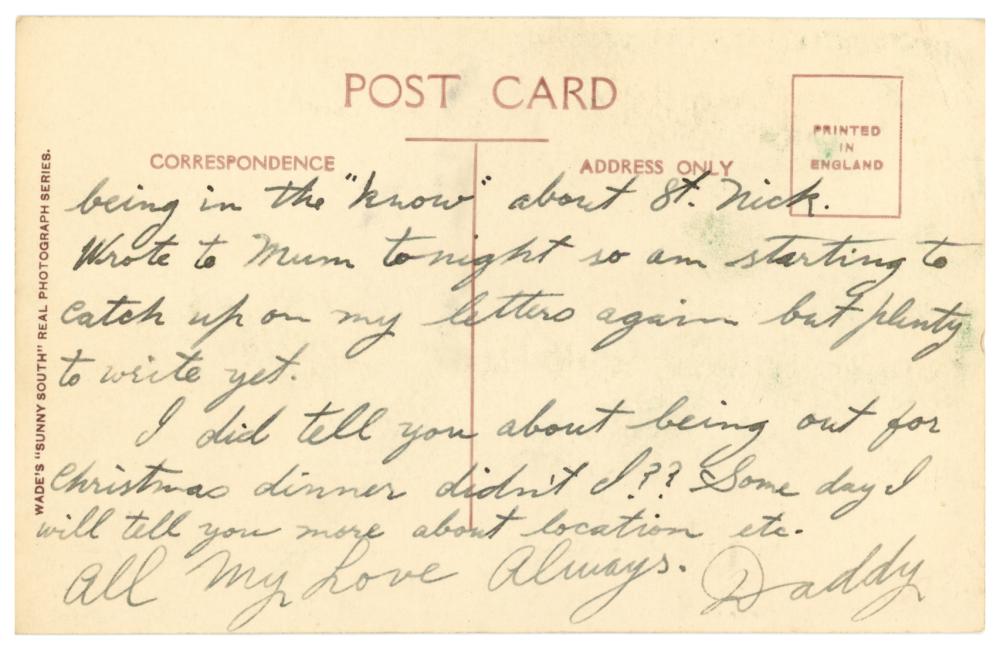 POST CARD
PRINTED
IN
ENGLAND
CORRESPONDENCE
ADDRESS ONLY
WADE'S "SUNNY SOUTH" REAL PHOTOGRAPH SERIES.
being in the "know" about St. Nick.
Wrote to Mum tonight so am starting to
catch up on my letters again but plenty
to write yet.
I did tell you about being out for
Christmas dinner didn't I?? Some day I
will tell you more about location etc.
All My Love Always. Daddy